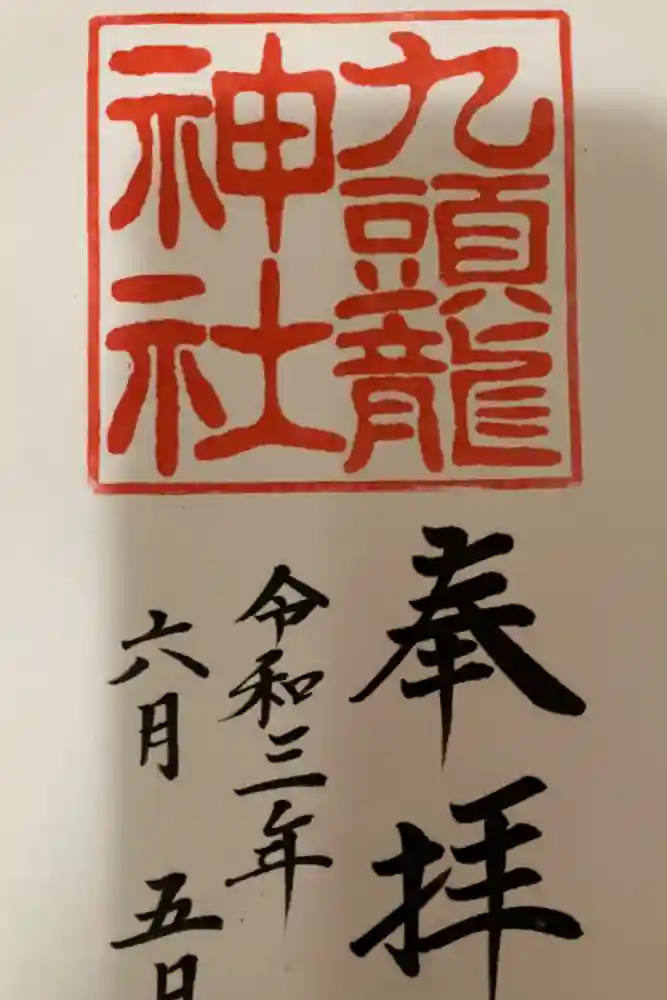 九頭龍
神社
奉拝
令和三年
六月五日